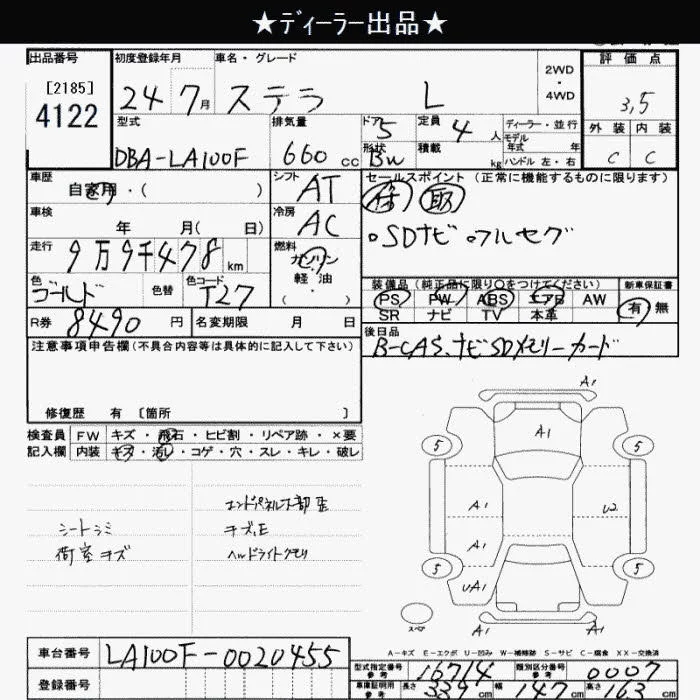 ★ディーラー出品★
出品番号 初度登録年月 車名・グレード 2WD・4WD 評価点
[2185]
4122 24 7月 ステラ L 3,5
型式 排気量 ドア 5 定員 4人 ディーラー・並行 外装 内装
モデル年式 年
DBA-LA100F 660cc 形状 BW 積載 kg ハンドル 左・右 C C
車歴 シフト セールスポイント (正常に機能するものに限ります)
自家用・( ) AT
車検 冷房
年 月( 日) AC ○SDナビ ○フルセグ
走行 燃料
9万9千478km ガソリン・軽油・( )
色 色替 色コード 装備品(純正品に限り○をつけてください) 新車保証書
ゴールド T27 PS PW ABS エアB AW 有 無
SR ナビ TV 本革
R券 8490円 名変期限 月 日 後日品
注意事項申告欄(不具合内容等は具体的に記入して下さい) B-CAS、ナビSDメモリーカード
修復歴 有 [箇所 ]
検査員 FW キズ・飛石・ヒビ割・リペア跡・×要
記入欄 内装 キズ・汚レ・コゲ・穴・スレ・キレ・破レ
A1
A1
5 5
A1 U2
A1
UA1
5 5
A1
スペア
シートシミ
荷室キズ
ヘッドライトクモリ
A-キズ E-エクボ U-凹み W-補修跡 S-サビ C-腐食 XX-交換済
車台番号 LA100F-0020455
登録番号
型式指定番号 参考 16714 類別区分番号 参考 0007
車庫証明用 参考 長さ 339cm 幅 147cm 高さ cm